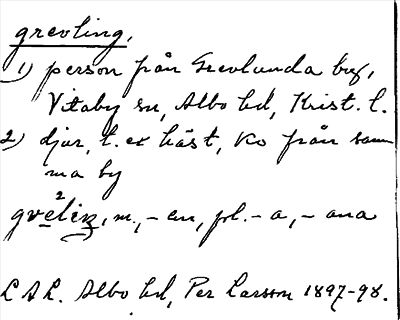 grevling,
1) person från Grevlunda by,
Vitaby sn, Albo hd, Krist. l.
2) djur, t. ex häst, ko från sam-
ma by
gvelin, m., -en, pl. -a, -ana
L A L. Albo hd, Per Larsson 1897-98.